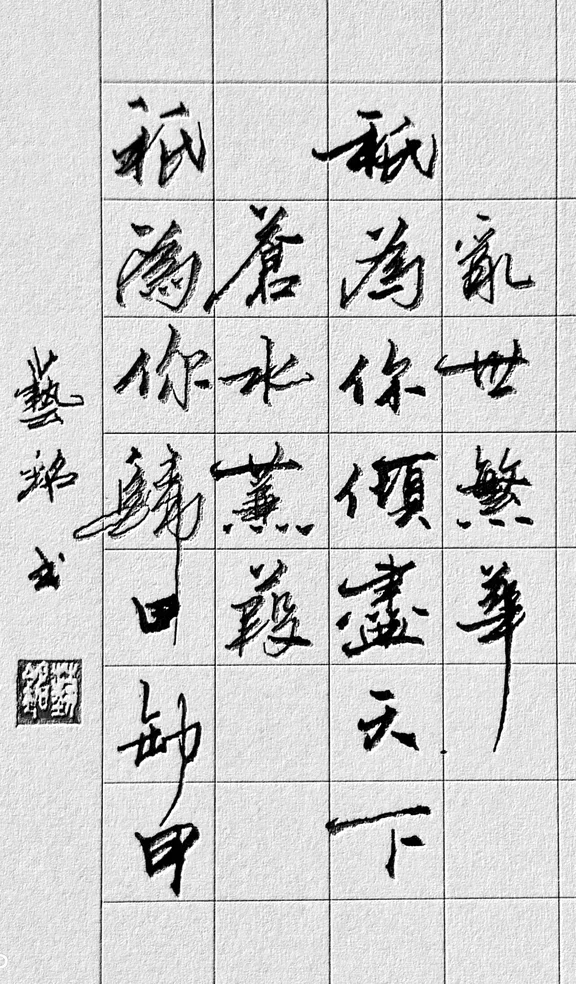 亂世繁華
祇為你傾盡天下
蒼水蒹葭
祇為你歸田卸甲
藝銘书